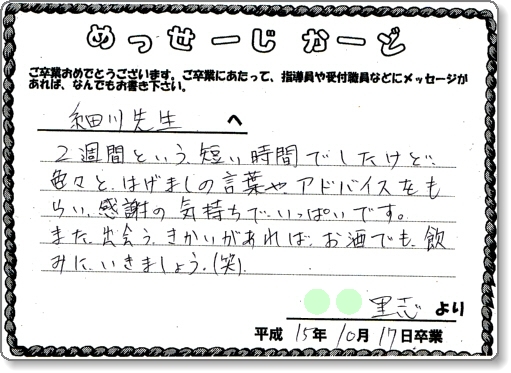 めっせーじ かーど
ご卒業おめでとうございます。ご卒業にあたって、指導員や受付職員などにメッセージが
あれば、なんでもお書き下さい。
細川先生 へ
2週間という短い時間でしたけど、
色々と、はげましの言葉や、アドバイスをも
らい、感謝の気持ちで、いっぱいです。
また、出会う、きかいがあれば、お酒でも、飲
みに、いきましょう。(笑)
里志 より
平成 15年 10月 17日卒業